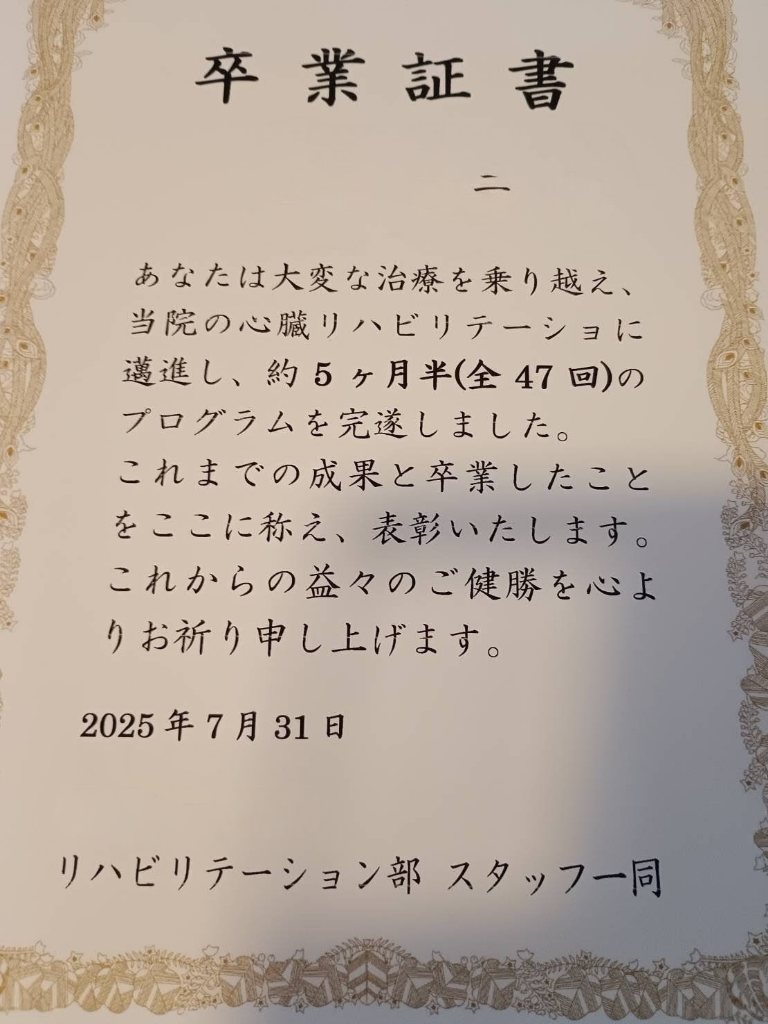 卒業証書
二
あなたは大変な治療を乗り越え、
当院の心臓リハビリテーショに
邁進し、約 5 ヶ月半(全 47 回)の
プログラムを完遂しました。
これまでの成果と卒業したこと
をここに称え、表彰いたします。
これからの益々のご健勝を心よ
りお祈り申し上げます。
2025 年 7 月 31 日
リハビリテーション部 スタッフ一同